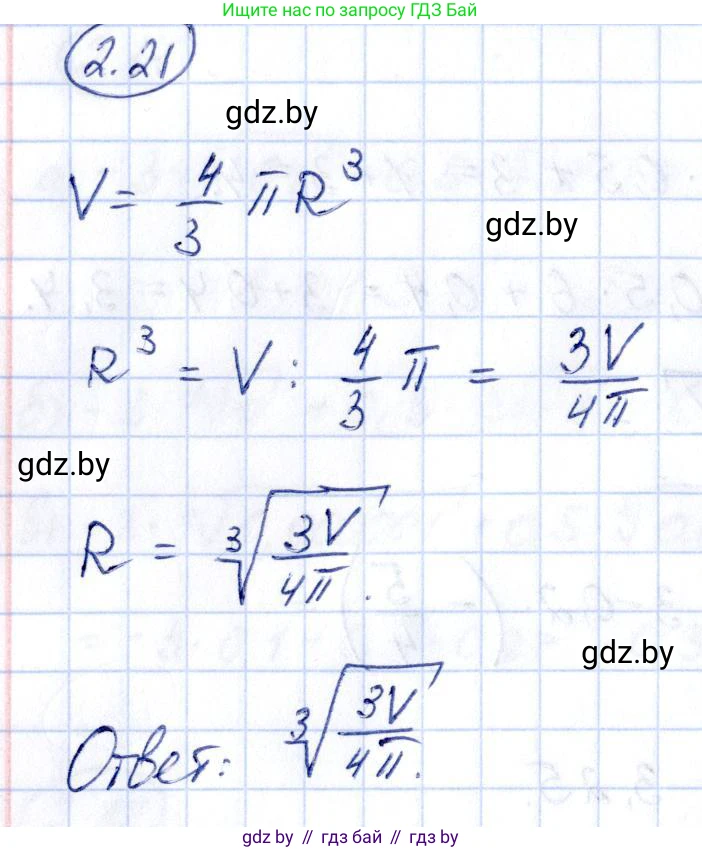 Ищите нас по запросу ГДЗ Бай
2.21
gdz.by
V = 4/3 πR³
gdz.by
R³ = V : 4/3 π = 3V/4π
gdz.by
R = ∛(3V/4π).
gdz.by
Ответ: ∛(3V/4π).
gdz.by // гдз бай // гдз by